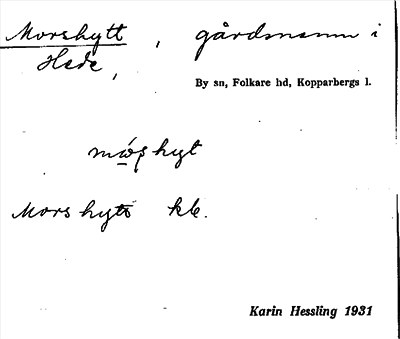 Morshytt, gårdsnamn i
Hede,
By sn, Folkare hd, Kopparbergs l.
Morshytt kb.
Karin Hessling 1931